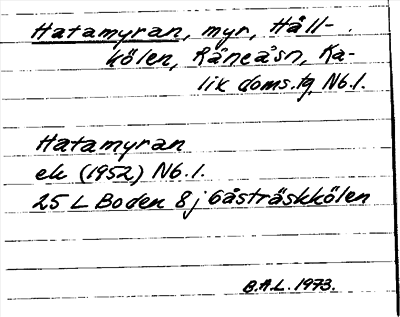 Hatamyran, myr, Håll-
kölen, Råneåsn, Ka-
lik doms.tg Nb.l.
Hatamyran
ek (1952) Nb.l.
25 L Boden 8j Gåsträskkölen
B.A.L. 1973.